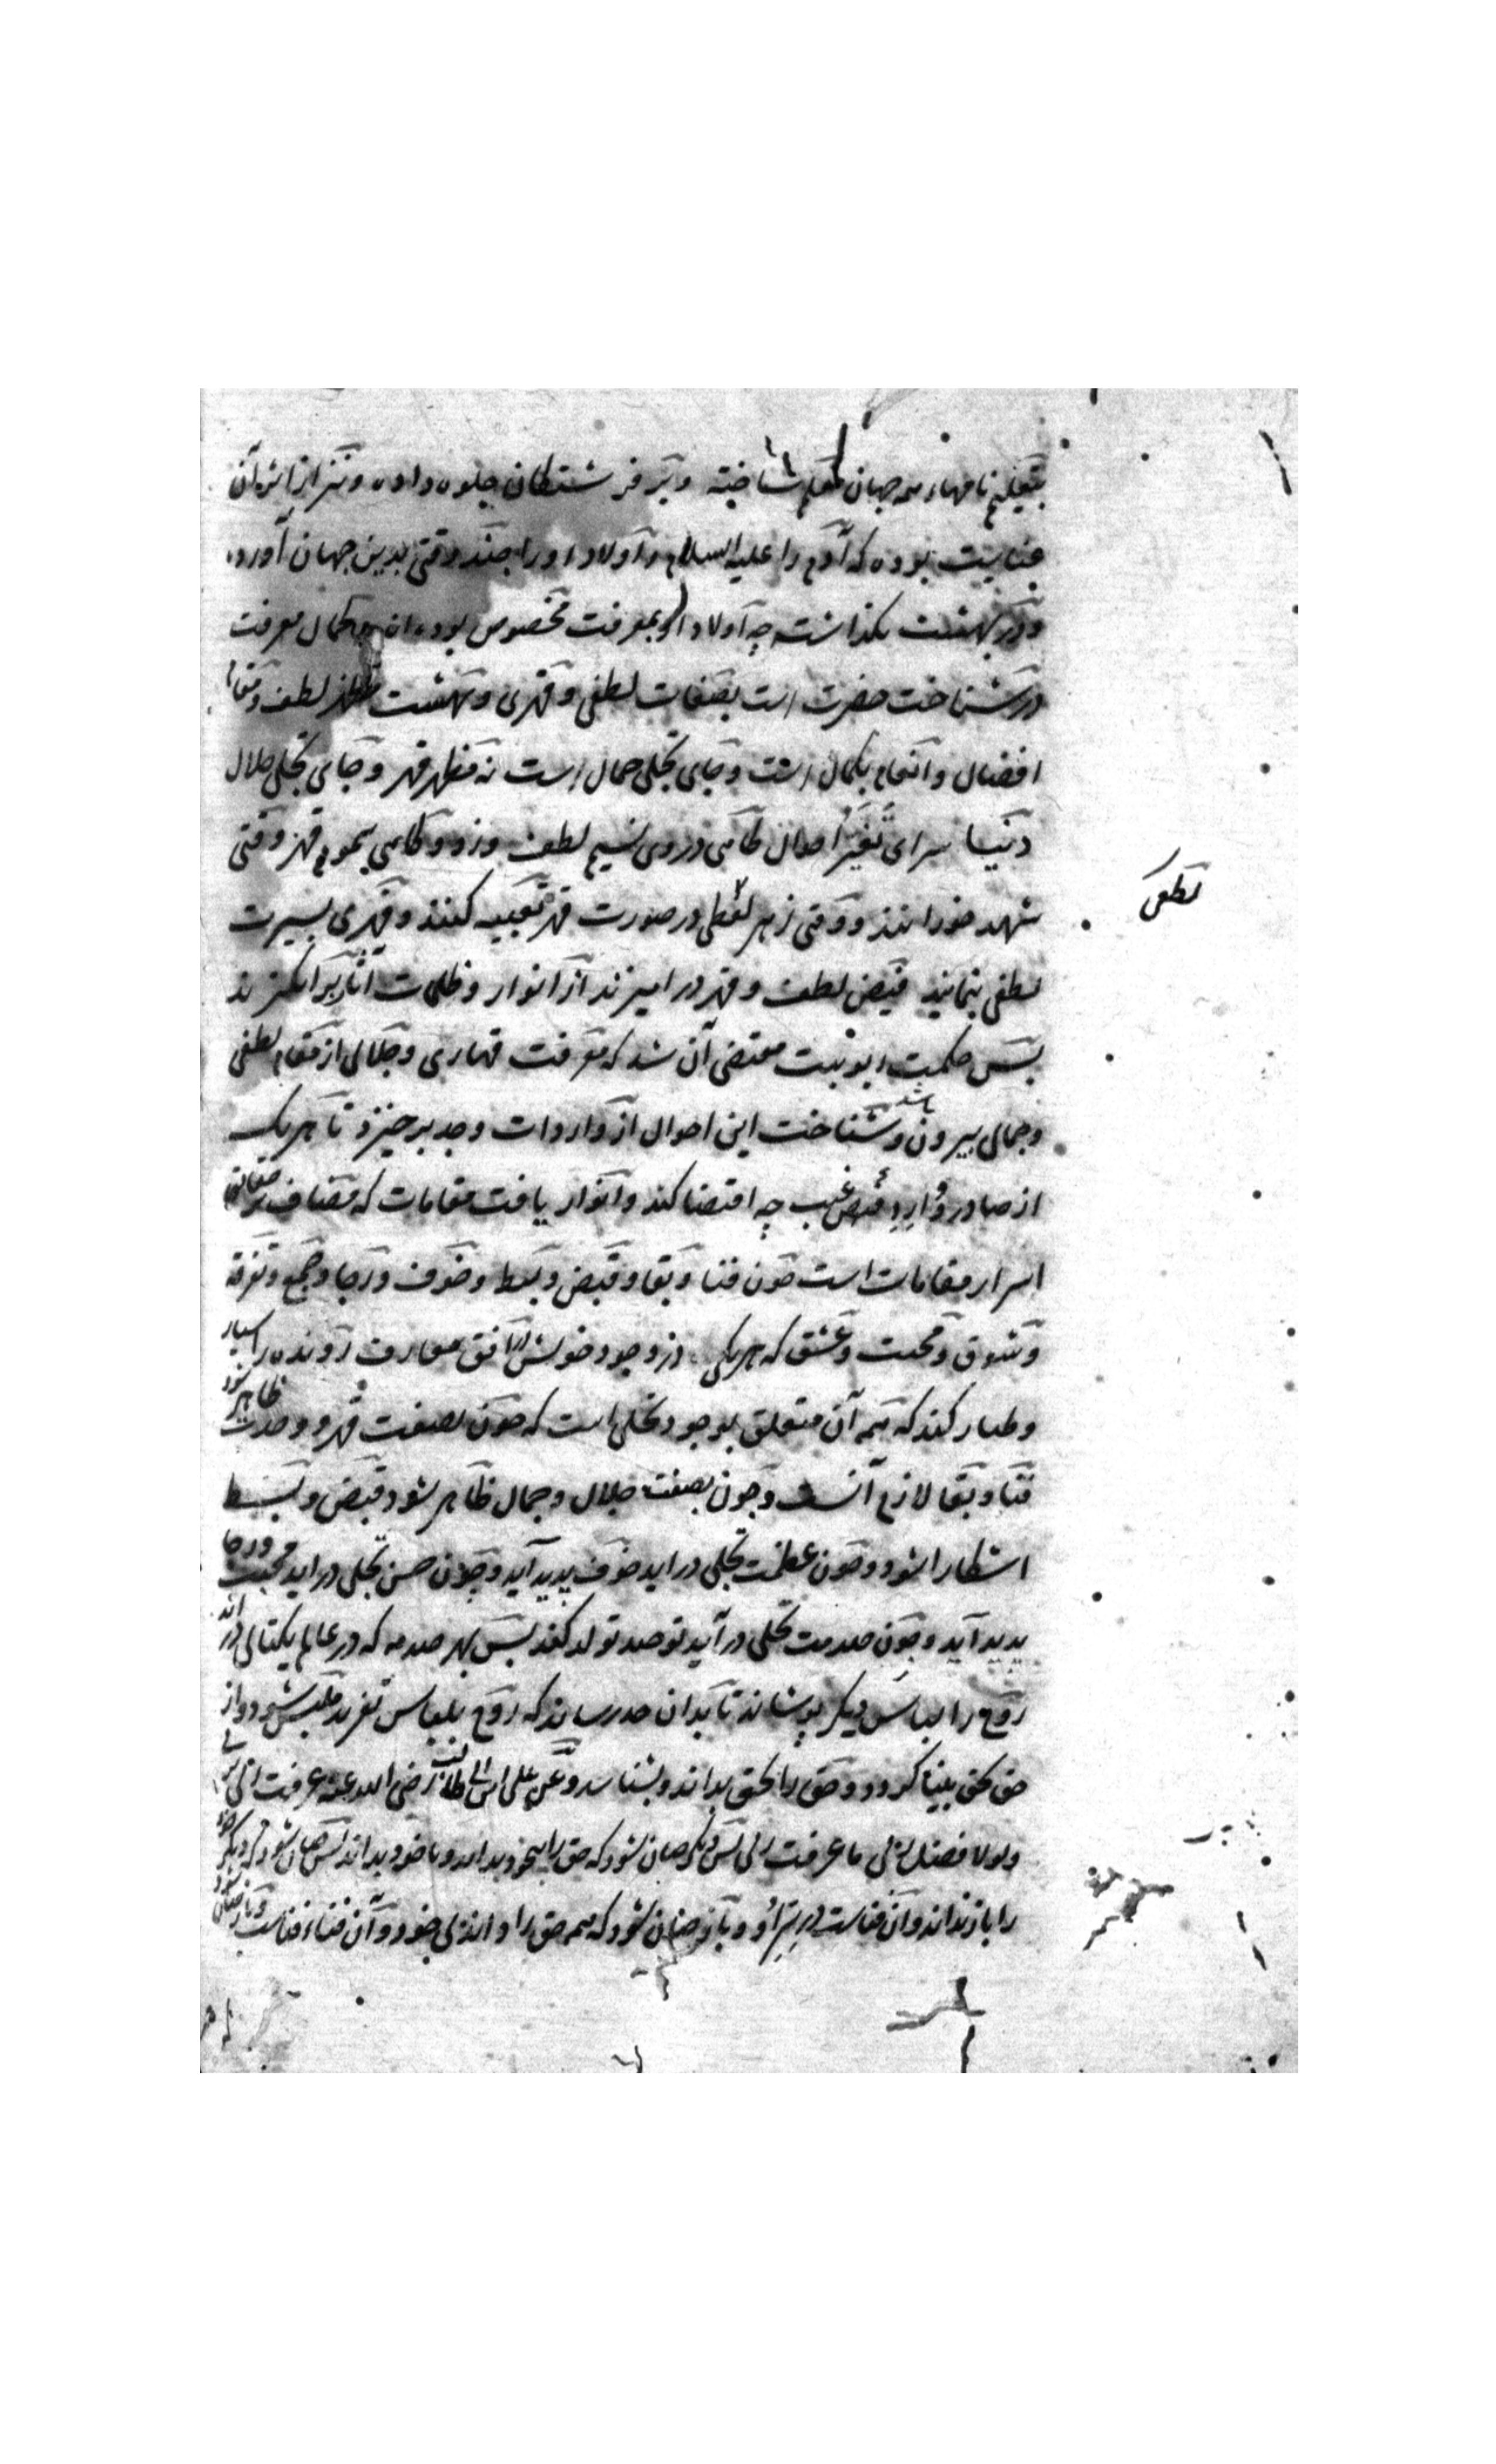 بتعلیم نامهاء همه جهان معلم شناخته و بر فرشتگان جلوه داده و نیز از اثر آن
عنایت بوده که آدم را علیه السلام و اولاد او را چند وقتی بدین جهان آورده
و در بهشت نگذاشته چه اولاد او بمعرفت مخصوص بوده اند کمال معرفت
در شناخت حضرت است بصفات لطفی و قهری و بهشت مظهر لطف و مقام
افضال و انعام بکمال است و جای تجلی جمال است نه مظهر قهر و جای تجلی جلال
دنیا سرای تغیر احوال گاهی در وی نسیم لطف وزد و گاهی سموم قهر وقتی
شهد خورانند و وقتی زهر لطفی در صورت قهر تعبیه کنند و قهری بسیرت
لطفی بنمایند فیض لطف و قهر در امیزند از انوار و ظلمات اثار برانگیزند
پس حکمت ربوبیت مقتضی آن شد که معرفت قهاری و جلالی از مقام لطفی
و جمالی بیرون باشد و شناخت این احوال از واردات وجد برخیزد تا هر یک
از صادر و وارد فیض غیب چه اقتضا کند و انوار یافت مقامات که مضاف بر صفات
اسرار مقامات است چون فنا و بقا و قبض و بسط و خوف و رجا و جمع و تفرقه
و شوق و محبت و عشق که هر یکی در وجود خویش افق معارف رونده را سیار
و طیار کند که همه آن متعلق بوجود تجلی است که چون بصفت قهر و وحدت ظاهر شود
فنا و بقا لازم آنست و چون بصفت جلال و جمال ظاهر شود قبض و بسط
اشطار شود و چون عظمت تجلی در اید خوف پدید آید و چون حسن تجلی در اید محبت و رجا
پدید آید و چون صدمت تجلی در آید توحید تولد کند پس بهر صدمه که در عالم یکتائی در آید
روح را لباس دیگر پوشاند تا بدان حد رساند که روح بلباس تفرید ملتبس شود و از
حق بحق بینا گردد و حق را بحق بداند و بشناسد و عن علی ابن ابی طالب رضی الله عنه عرفت ربی بربی
و لولا فضل ربی ما عرفت ربی پس دیگر چنان شود که حق را بخود بداند و با خود بداند پس چنان شود که دیگر خود
را باز نداند و آن فناست در سر او و باز چنان شود که همه حق را داند بی خود و آن فناء فناست و باز چنان شود
لطفی